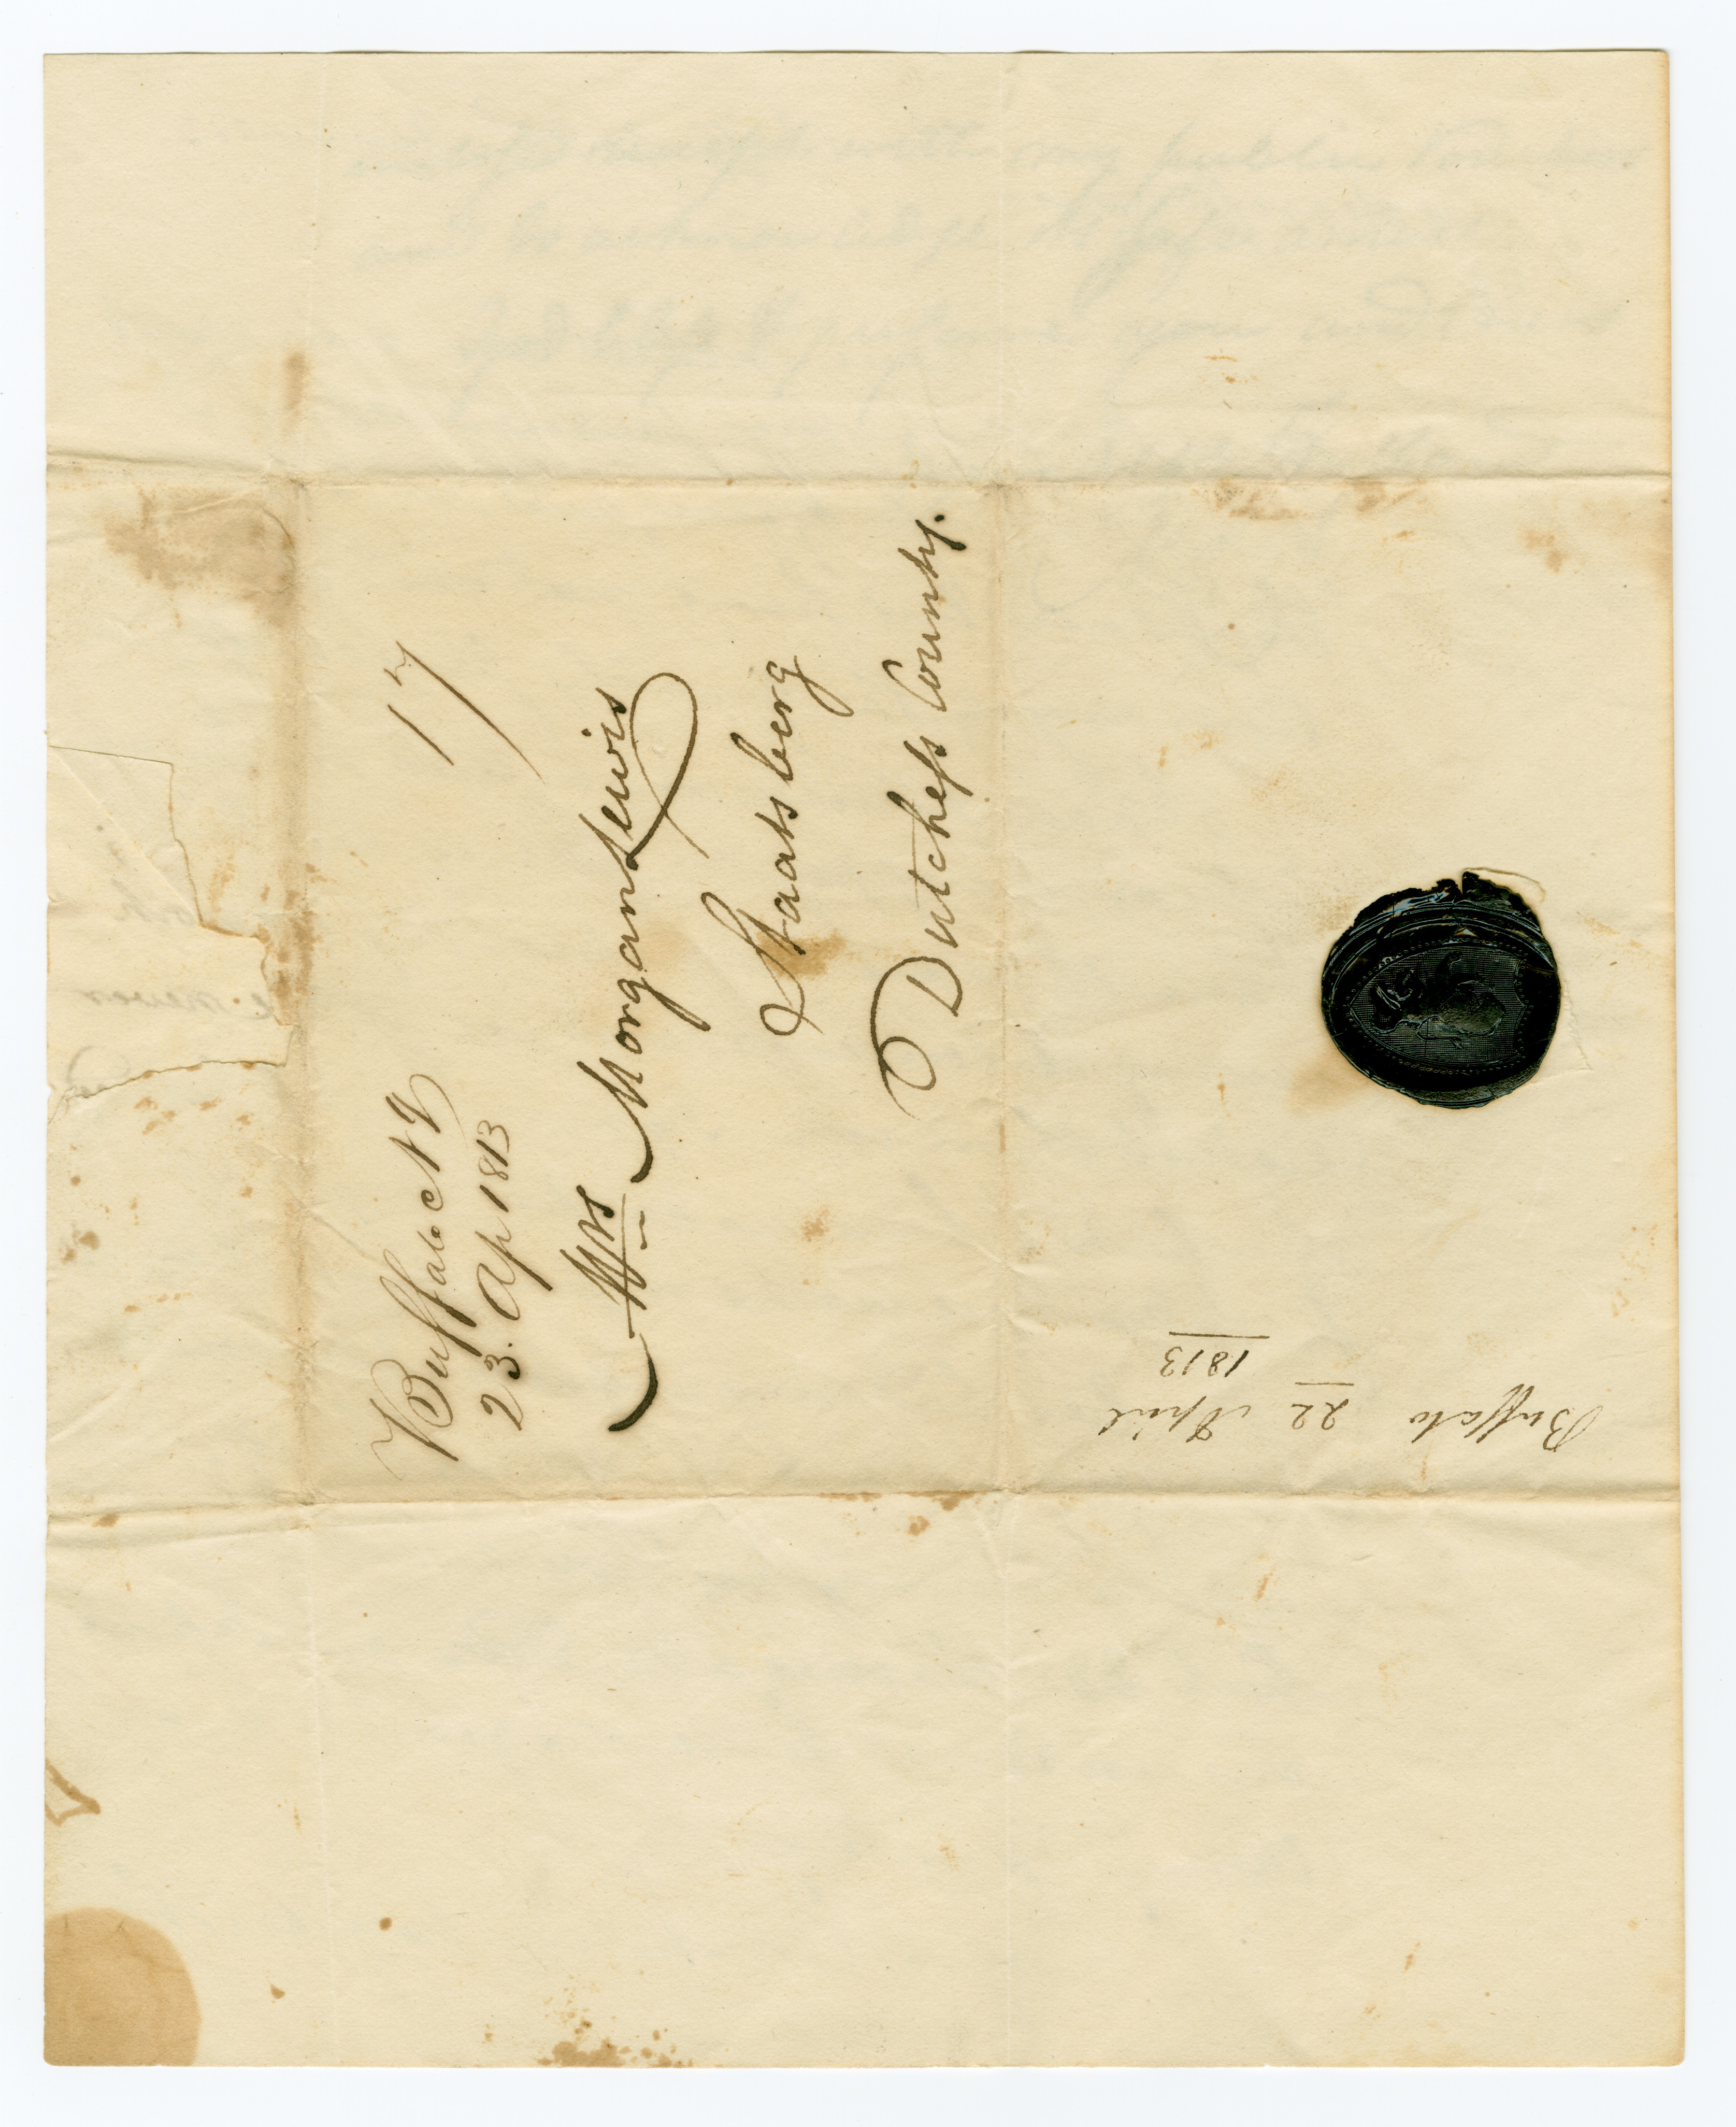 Buffalo NY
23. Ap 1813
17
Mrs Morgan Lewis
Staatsberg
Dutchess County.
Buffalo 22 April
1813